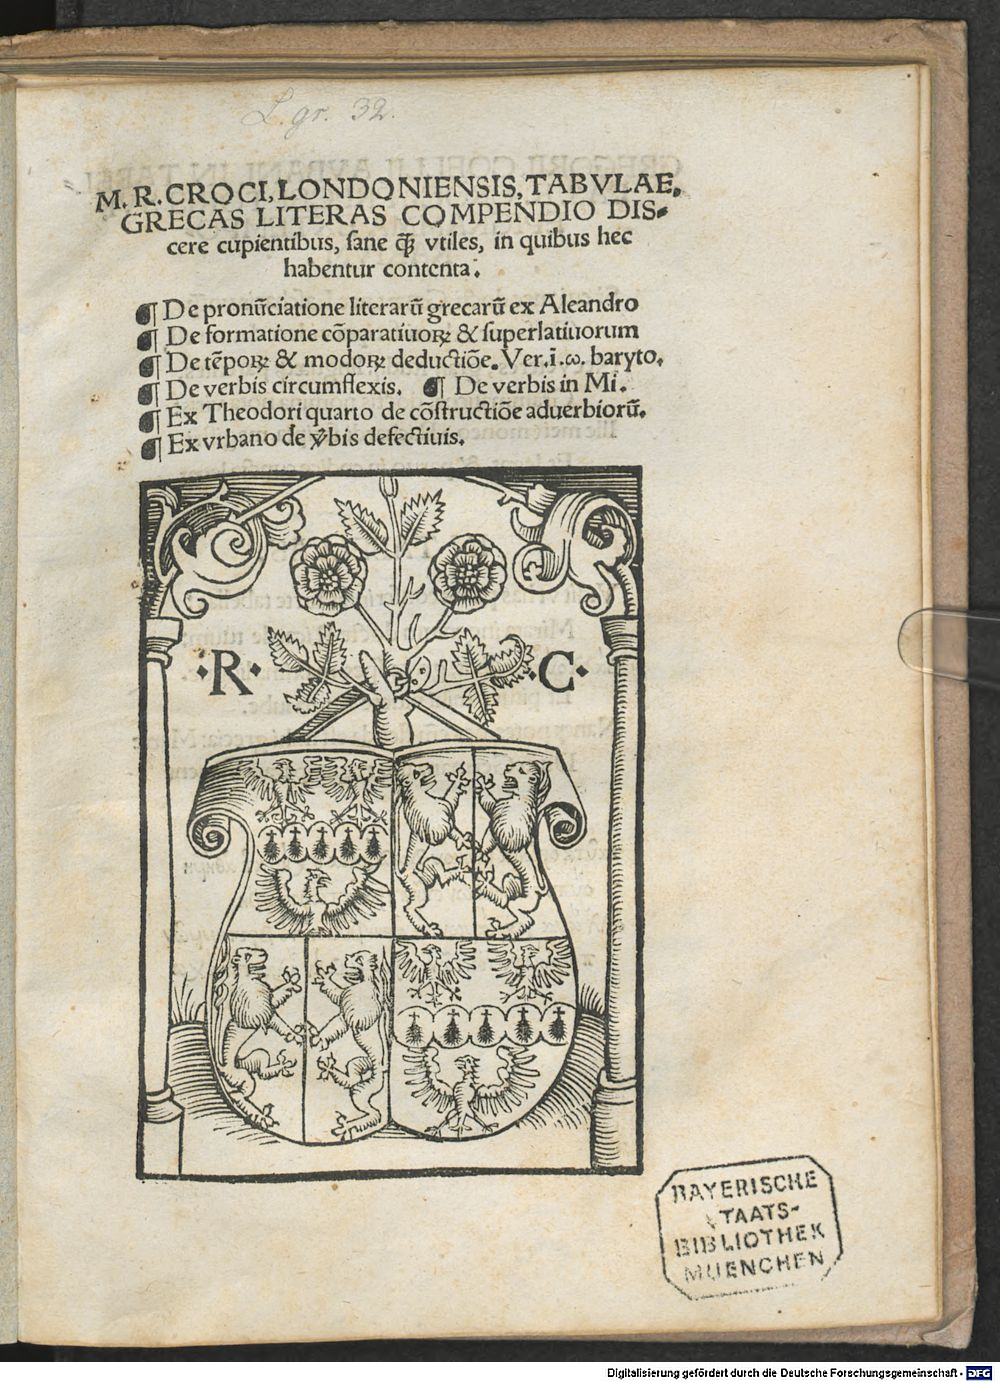 L. gr. 32.
M. R. CROCI, LONDONIENSIS, TABVLAE,
GRECAS LITERAS COMPENDIO DIS-
cere cupientibus, sane ꝙ̃ vtiles, in quibus hec
habentur contenta.
¶ De pronũciatione literarũ grecarũ ex Aleandro
¶ De formatione cõparatiuoꝝ & superlatiuorum
¶ De tẽpoꝝ & modoꝝ deductiõe. Ver. ĩ. ω. baryto.
¶ De verbis circumflexis. ¶ De verbis in Mi.
¶ Ex Theodori quarto de cõstructiõe aduerbiorũ.
¶ Ex vrbano de v̾bis defectiuis.
·R· ·C·
BAYERISCHE
STAATS-
BIBLIOTHEK
MUENCHEN
Digitalisierung gefördert durch die Deutsche Forschungsgemeinschaft - DFG